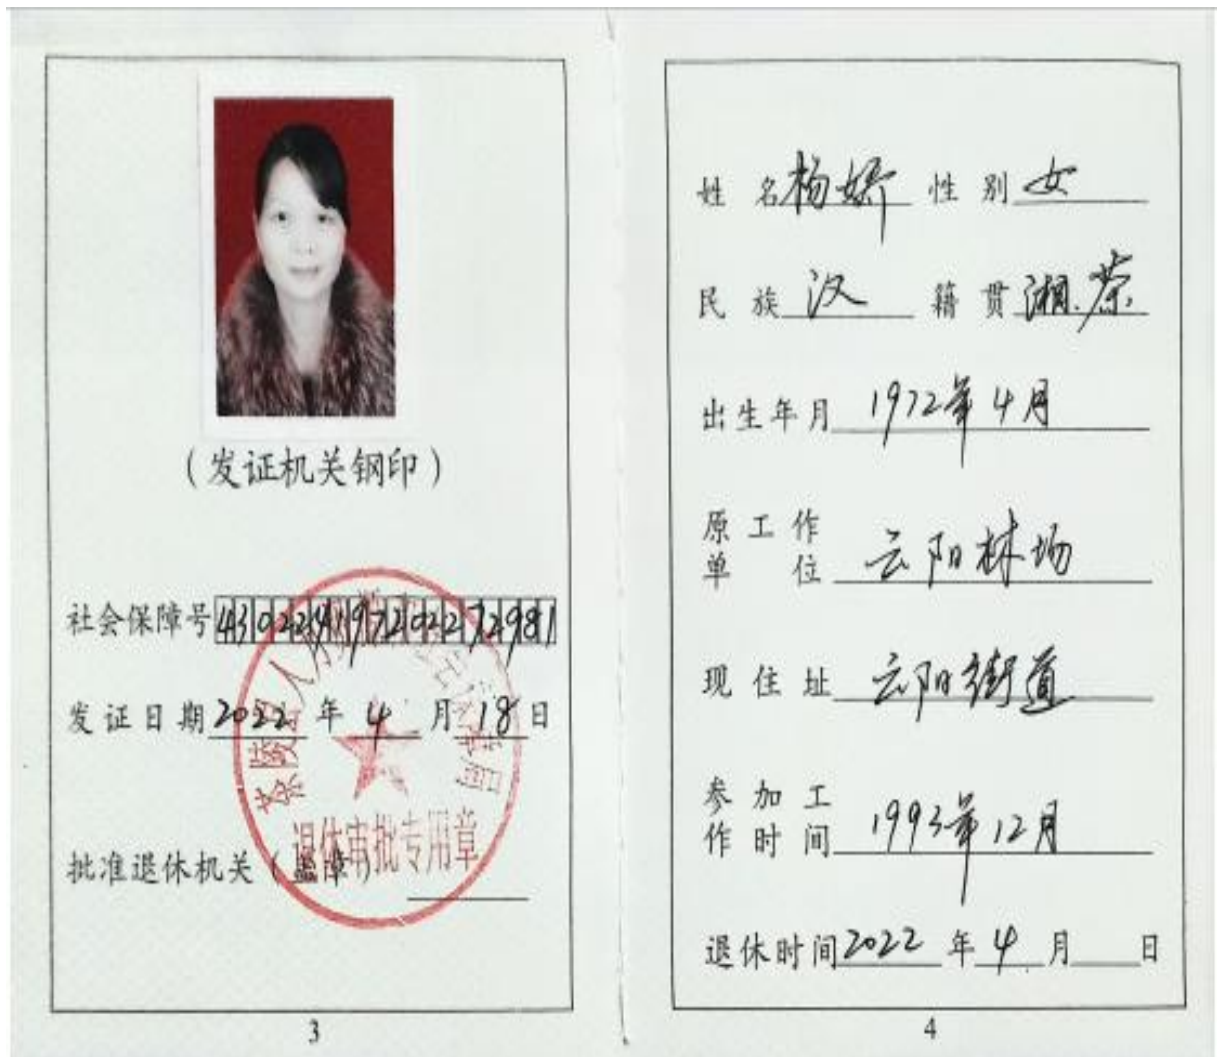 (发证机关钢印)
社会保障号 430224197202272981
发证日期 2022 年 4 月 18 日
批准退休机关(盖章)
退休审批专用章
3
姓名 杨娇 性别 女
民族 汉 籍贯 湖.茶.
出生年月 1972年4月
原工作
单位 云阳林场
现住址 云阳街道
参加工
作时间 1993年12月
退休时间 2022 年 4 月 日
4